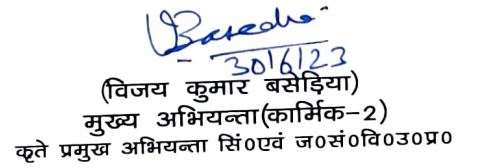 VBasedia
30/6/23
(विजय कुमार बसेड़िया)
मुख्य अभियन्ता(कार्मिक-2)
कृते प्रमुख अभियन्ता सिं०एवं ज०सं०वि०उ०प्र०